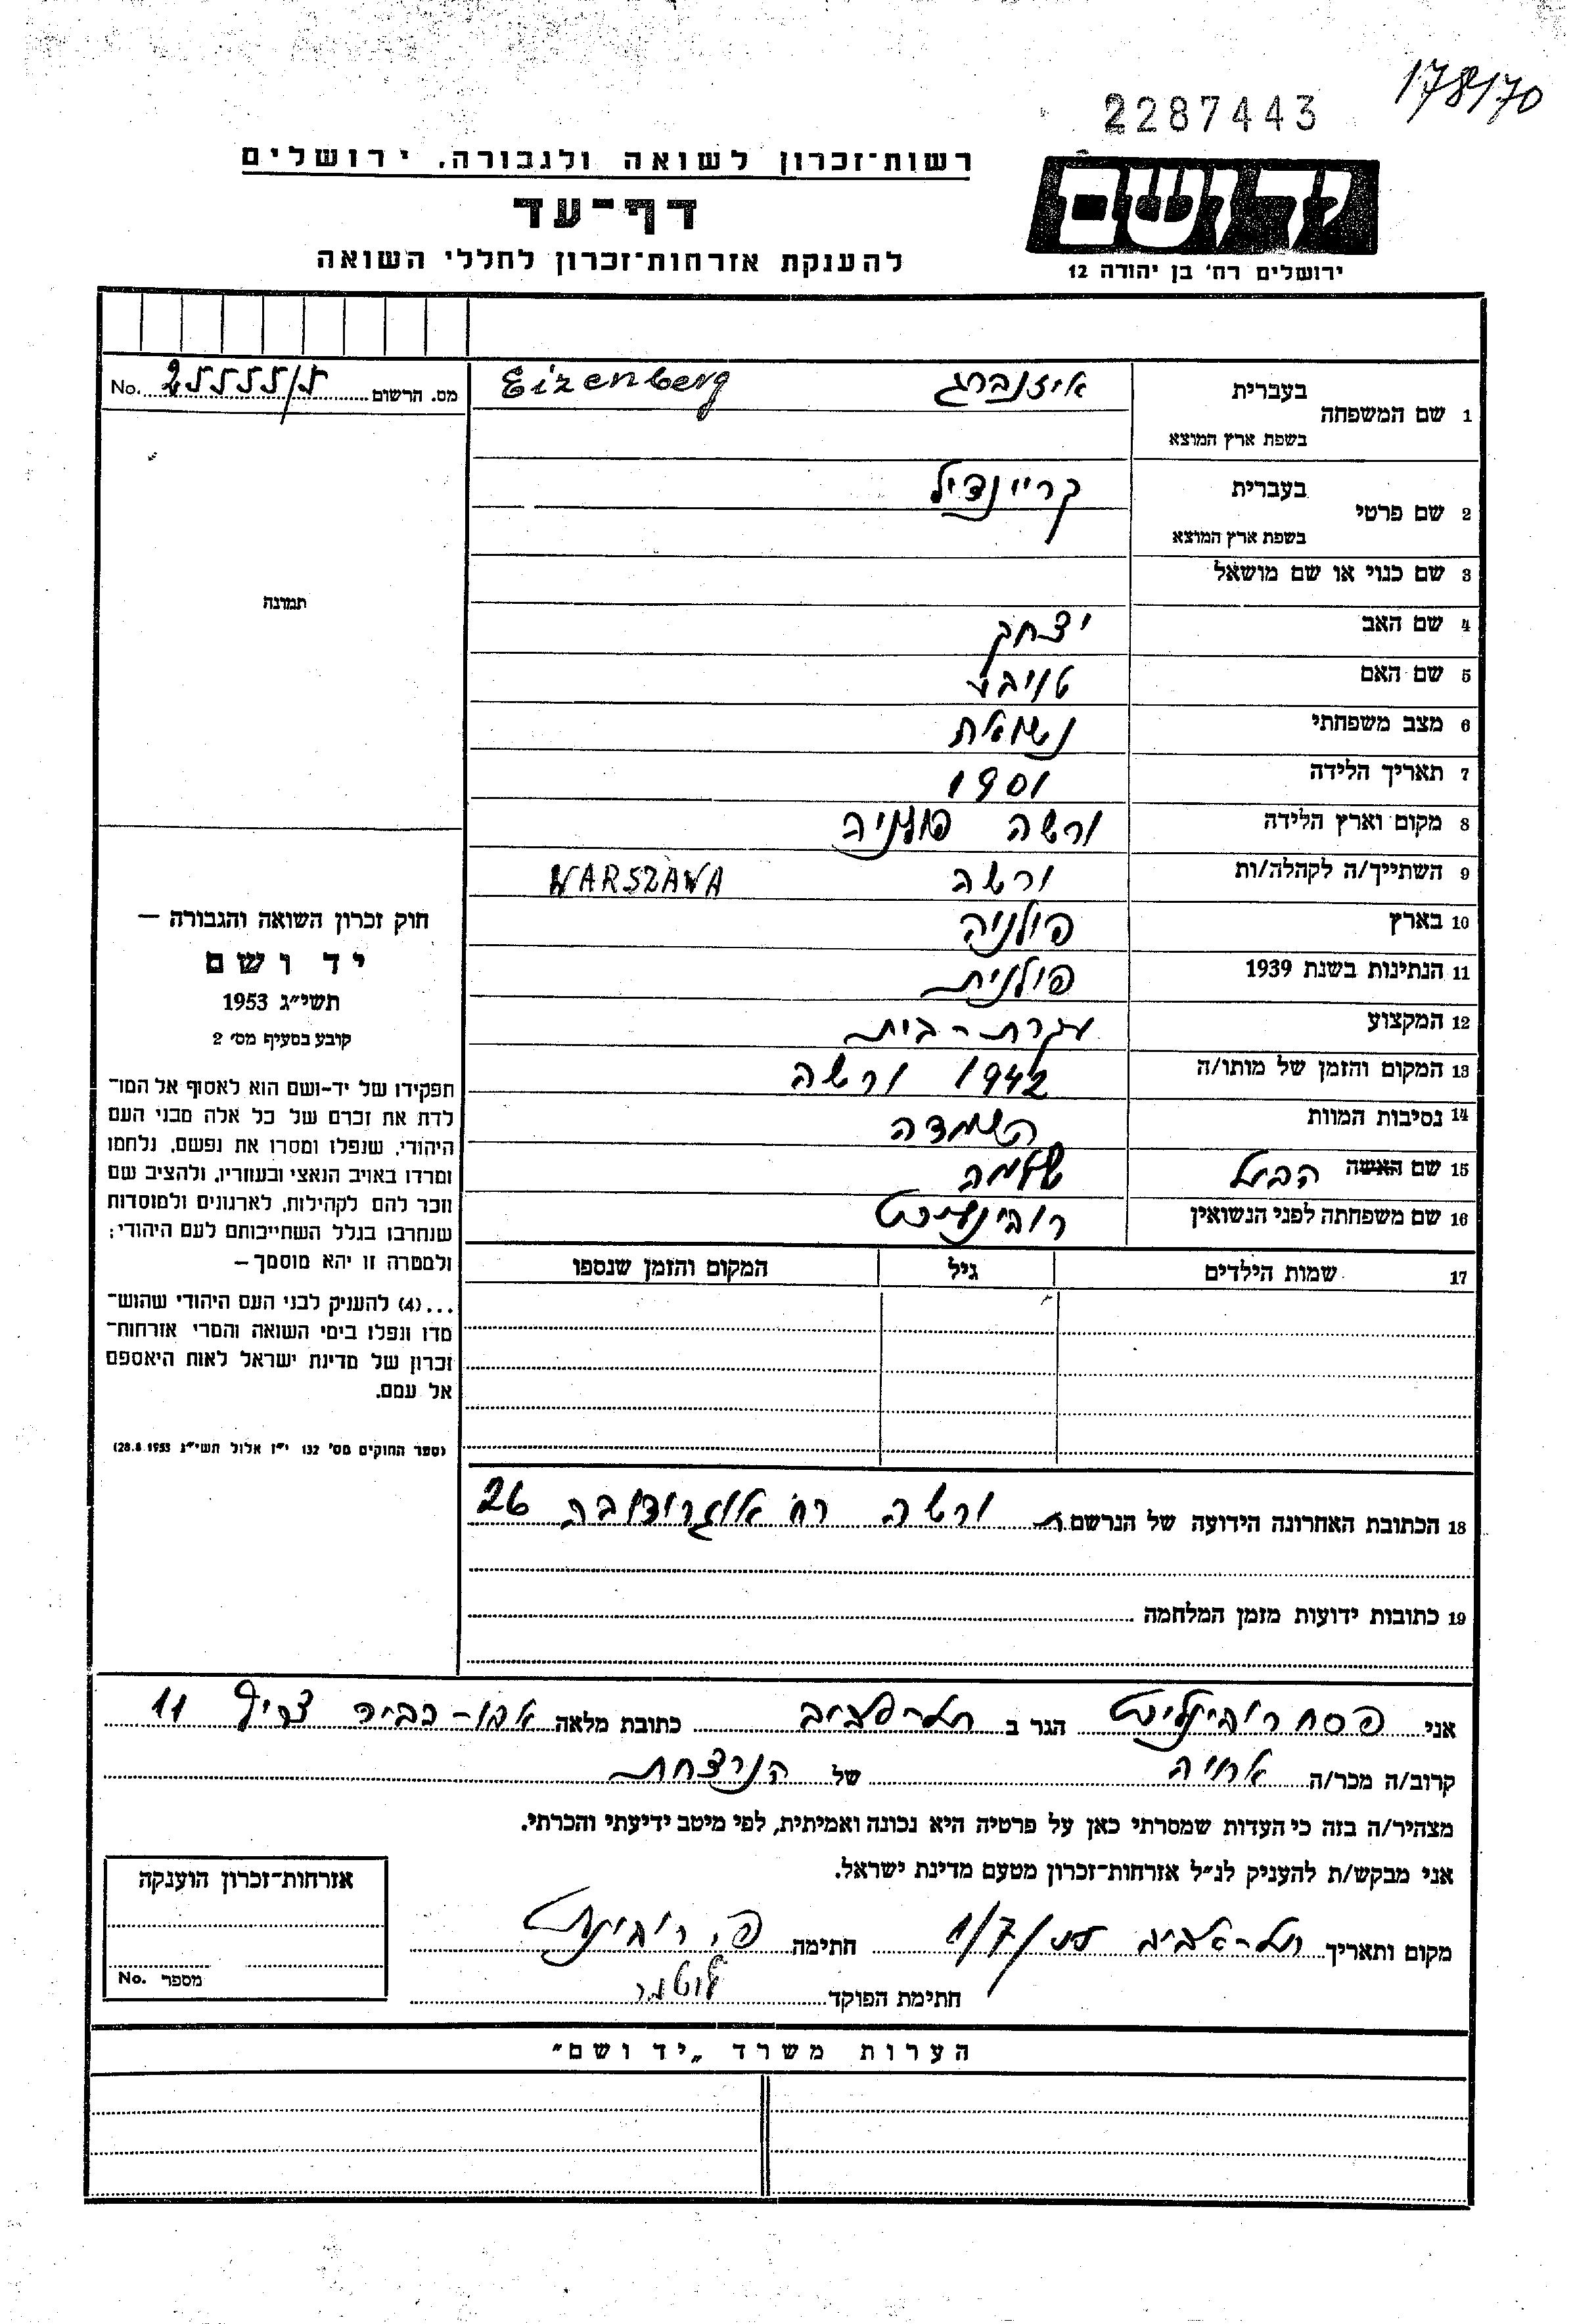 178170
2287443
יד ושם
ירושלים רח' בן יהודה 12
רשות־זכרון לשואה ולגבורה, ירושלים
דף־עד
להענקת אזרחות־זכרון לחללי השואה
מס. הרשום No.
1 שם המשפחה בעברית איזנברג Eizenberg
בשפת ארץ המוצא
2 שם פרטי בעברית קריינדיל
בשפת ארץ המוצא
3 שם כנוי או שם מושאל
4 שם האב יצחק
5 שם האם טויבע
6 מצב משפחתי נשואת
7 תאריך הלידה 1901
8 מקום וארץ הלידה ורשה פולניה
9 השתייך/ה לקהלה/ות ורשה WARSZAWA
10 בארץ פולניה
11 הנתינות בשנת 1939 פולנית
12 המקצוע עקרת-בית
13 המקום והזמן של מותו/ה 1942 ורשה
14 נסיבות המוות השמדה
15 שם האשה הבעל שלמה
16 שם משפחתה לפני הנשואין
17 שמות הילדים גיל המקום והזמן שנספו
18 הכתובת האחרונה הידועה של הנרשם ת ורשה רח' אוגרודובה 26
19 כתובות ידועות מזמן המלחמה
תמונה
חוק זכרון השואה והגבורה —
יד ושם
תשי״ג 1953
קובע בסעיף מס' 2
תפקידו של יד-ושם הוא לאסוף אל המו־
לדת את זכרם של כל אלה מבני העם
היהודי, שנפלו ומסרו את נפשם, נלחמו
ומרדו באויב הנאצי ובעוזריו, ולהציב שם
וזכר להם לקהילות, לארגונים ולמוסדות
שנחרבו בגלל השתייכותם לעם היהודי;
ולמטרה זו יהא מוסמך —
...(4) להעניק לבני העם היהודי שהוש־
מדו ונפלו בימי השואה והמרי אזרחות־
זכרון של מדינת ישראל לאות היאספם
אל עמם.
(ספר החוקים מס' 132 י״ז אלול תשי״ג 28.8.1953)
אני פסח הגר ב תל-אביב כתובת מלאה אבו-כביר צריף 11
קרוב/ה מכר/ה אחיה של הנרצחת
מצהיר/ה בזה כי העדות שמסרתי כאן על פרטיה היא נכונה ואמיתית, לפי מיטב ידיעתי והכרתי.
אני מבקש/ת להעניק לנ״ל אזרחות־זכרון מטעם מדינת ישראל.
מקום ותאריך תל-אביב 1/7/55 חתימה
חתימת הפוקד
אזרחות־זכרון הוענקה
מספר No.
הערות משרד „יד ושם״